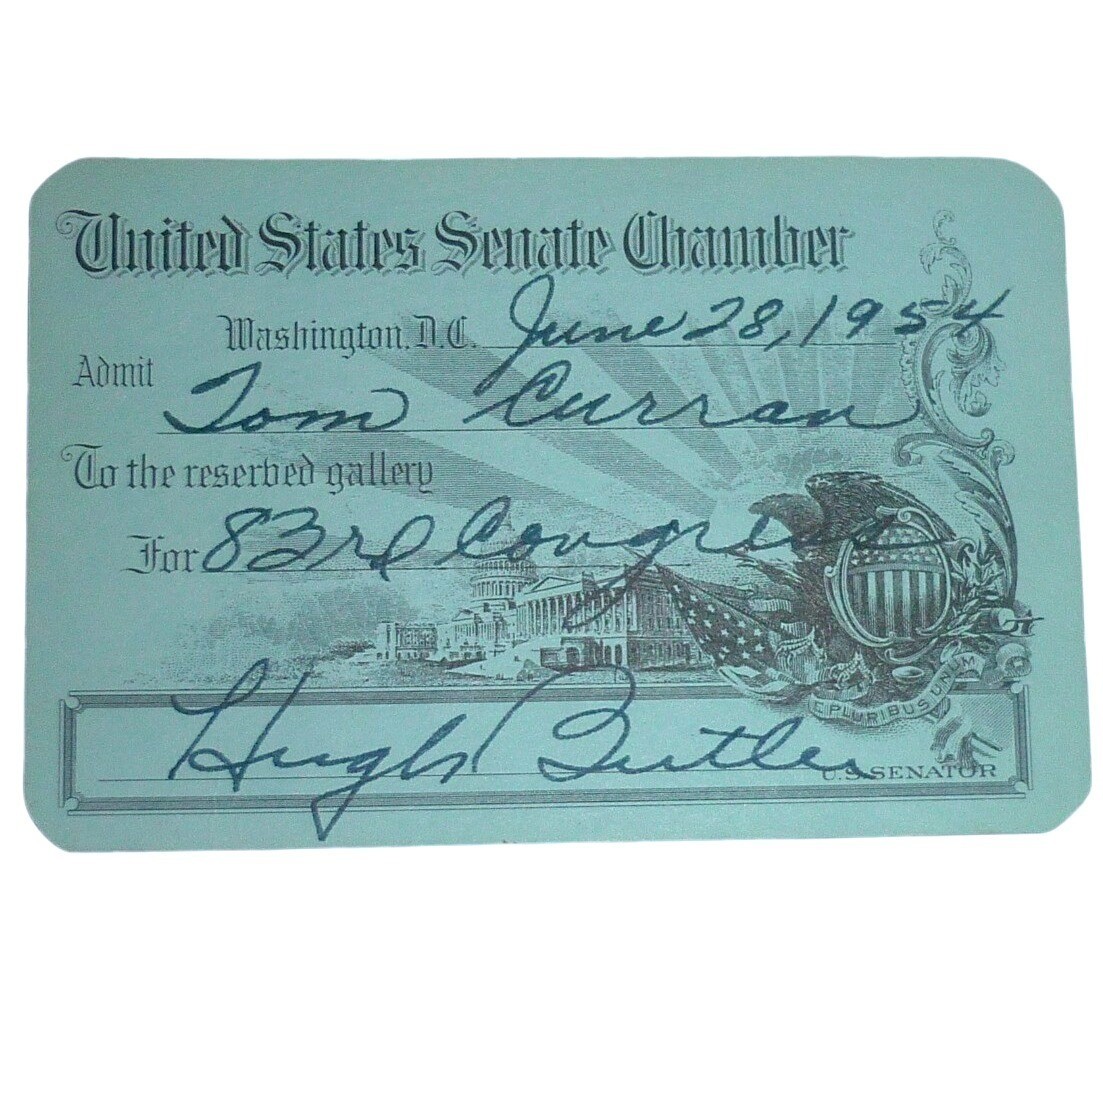 United States Senate Chamber
Washington, D.C. June 28, 1954
Admit Tom Curran
To the reserved gallery
For 83rd Congress
E PLURIBUS UNUM
Hugh Butler
U.S. SENATOR